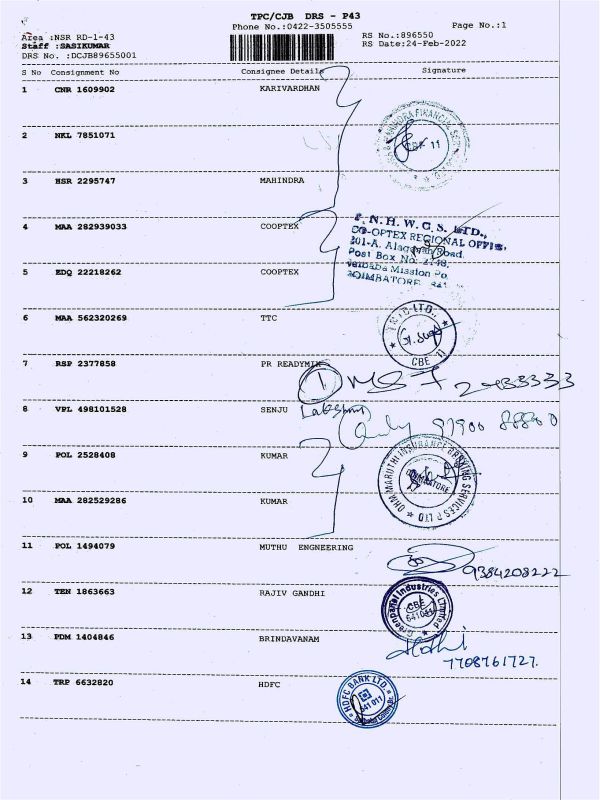 TPC/CJB DRS - P43
Phone No.:0422-3505555
Page No.:1
Area :NSR RD-1-43
RS No.:896550
Staff :SASIKUMAR
RS Date:24-Feb-2022
DRS No. :DCJB89655001
S No Consignment No Consignee Details Signature
1 CNR 1609902 KARIVARDHAN
CBE 11
2 NKL 7851071
3 HSR 2295747 MAHINDRA
4 MAA 282939033 COOPTEX
T.N.H.W.C.S. LTD.,
CO-OPTEX REGIONAL OFFICE,
201-A, Road.
Post Box No:
Saibaba Mission Po
COIMBATORE
5 EDQ 22218262 COOPTEX
6 MAA 562320269 TTC
LTD.
CBE 11
7 RSP 2377858 PR READYMIX
1
8 VPL 498101528 SENJU
9 POL 2528408 KUMAR
OHM MARUTHI INSURANCE BROKING SERVICES P LTD
COIMBATORE
10 MAA 282529286 KUMAR
11 POL 1494079 MUTHU ENGNEERING
9384208222
12 TEN 1863663 RAJIV GANDHI
Greenpanel Industries Limited
CBE
641011
13 PDM 1404846 BRINDAVANAM
7708761727.
14 TRP 6632820 HDFC
HDFC BANK LTD.
641 011